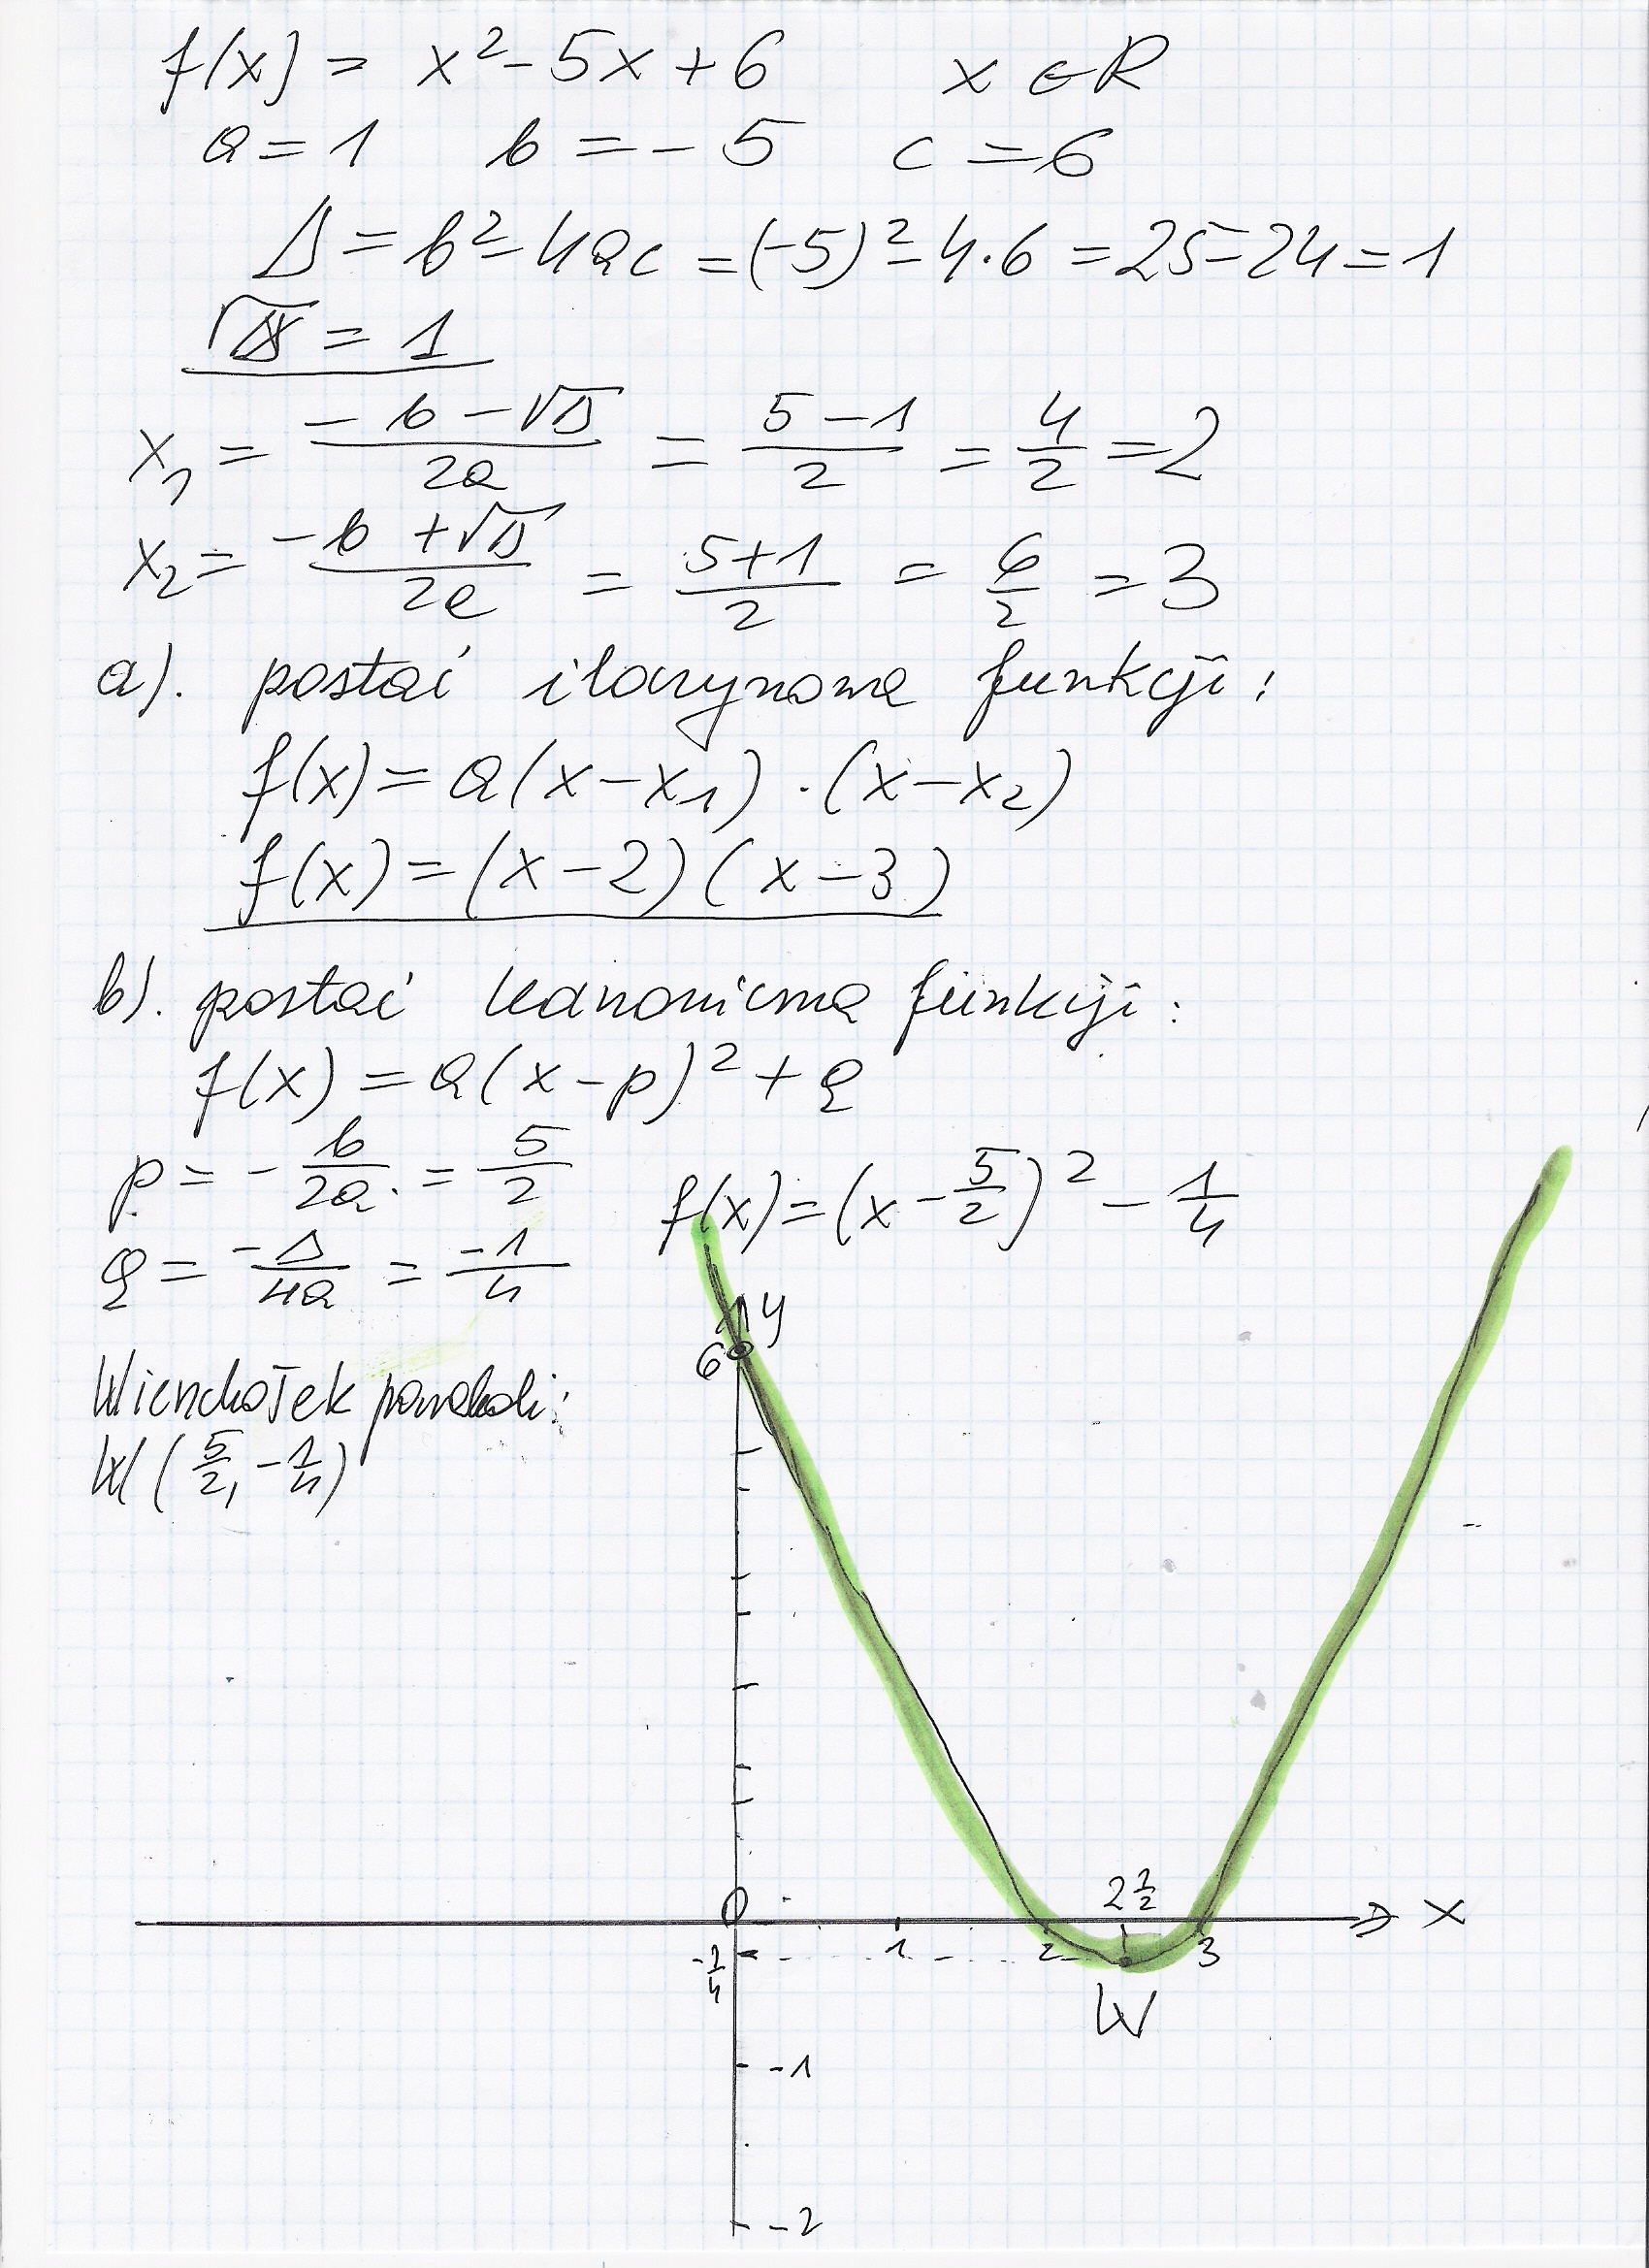 f(x) = x² - 5x + 6 x ∈ R
a = 1 b = -5 c = 6
Δ = b² - 4ac = (-5)² - 4·6 = 25 - 24 = 1
√Δ = 1
x₁ = (-b - √Δ)/2a = (5 - 1)/2 = 4/2 = 2
x₂ = (-b + √Δ)/2a = (5 + 1)/2 = 6/2 = 3
a). postać iloczynowa funkcji:
f(x) = a(x - x₁) · (x - x₂)
f(x) = (x - 2)(x - 3)
b). postać kanoniczna funkcji:
f(x) = a(x - p)² + q
p = - b/2a = 5/2
f(x) = (x - 5/2)² - 1/4
q = -Δ/4a = -1/4
Wierzchołek paraboli:
W (5/2, -1/4)
y
6
0
2 1/2
x
-1/4
1
2
3
W
-1
-2